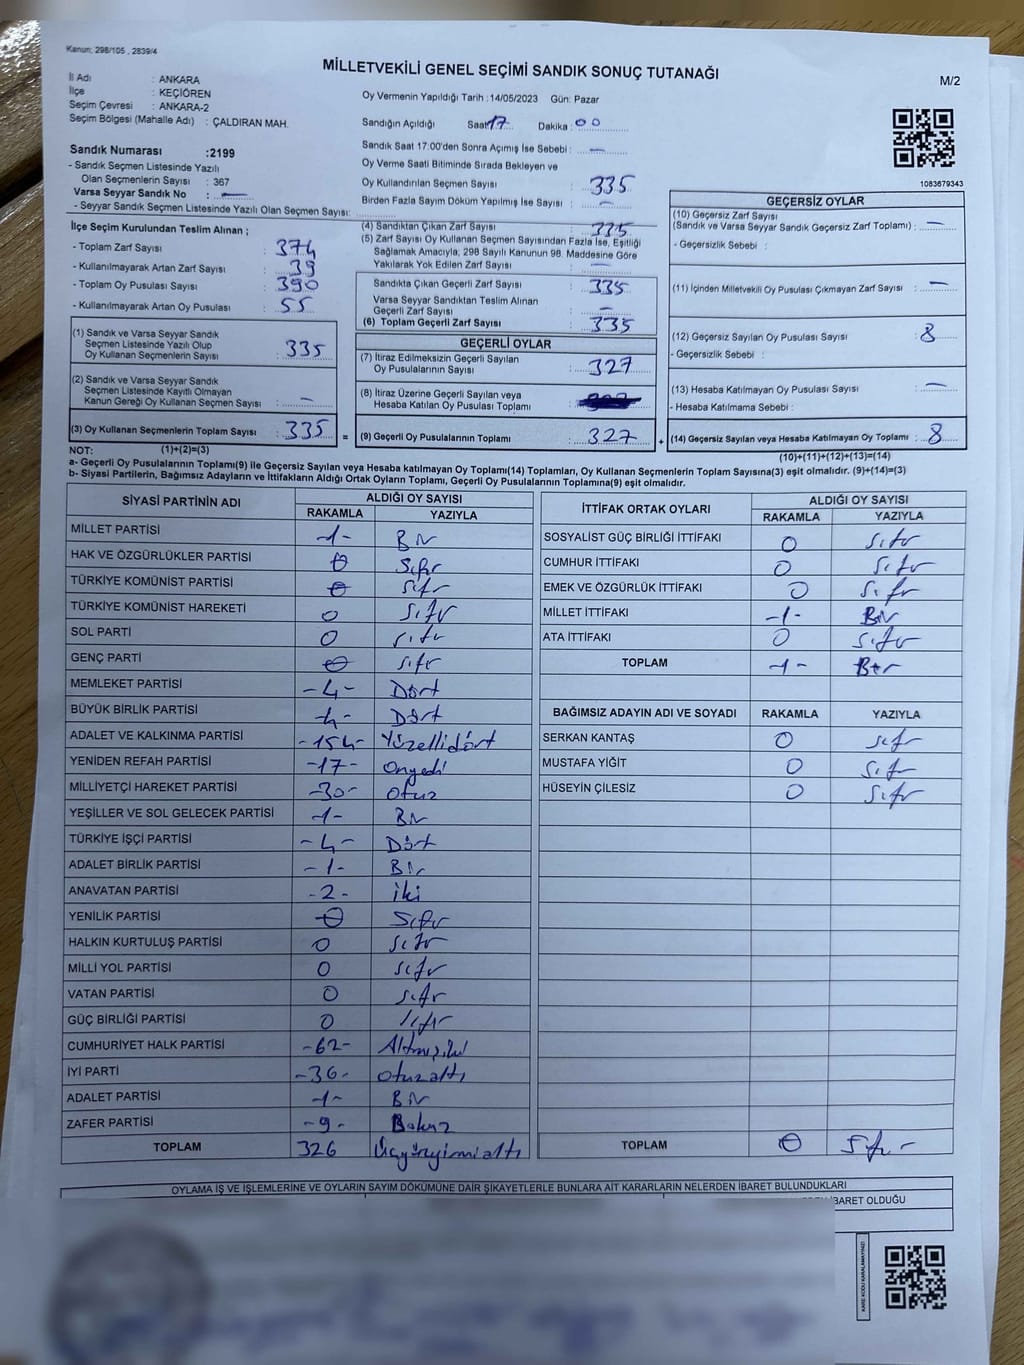 Kanun; 298/105 , 2839/4
MİLLETVEKİLİ GENEL SEÇİMİ SANDIK SONUÇ TUTANAĞI
M/2
İl Adı : ANKARA
İlçe : KEÇİÖREN
Seçim Çevresi : ANKARA-2
Seçim Bölgesi (Mahalle Adı) : ÇALDIRAN MAH.
Sandık Numarası :2199
- Sandık Seçmen Listesinde Yazılı
Olan Seçmenlerin Sayısı : 367
Varsa Seyyar Sandık No : —
- Seyyar Sandık Seçmen Listesinde Yazılı Olan Seçmen Sayısı:
Oy Vermenin Yapıldığı Tarih :14/05/2023 Gün: Pazar
Sandığın Açıldığı Saat:17 Dakika : 00
Sandık Saat 17:00'den Sonra Açımış İse Sebebi : —
Oy Verme Saati Bitiminde Sırada Bekleyen ve
Oy Kullandırılan Seçmen Sayısı : 335
Birden Fazla Sayım Döküm Yapılmış İse Sayısı : —
1083679343
İlçe Seçim Kurulundan Teslim Alınan ;
- Toplam Zarf Sayısı : 374
- Kullanılmayarak Artan Zarf Sayısı : 39
- Toplam Oy Pusulası Sayısı : 390
- Kullanılmayarak Artan Oy Pusulası : 55
(1) Sandık ve Varsa Seyyar Sandık
Seçmen Listesinde Yazılı Olup
Oy Kullanan Seçmenlerin Sayısı : 335
(2) Sandık ve Varsa Seyyar Sandık
Seçmen Listesinde Kayıtlı Olmayan
Kanun Gereği Oy Kullanan Seçmen Sayısı : —
(3) Oy Kullanan Seçmenlerin Toplam Sayısı : 335
(4) Sandıktan Çıkan Zarf Sayısı : 335
(5) Zarf Sayısı Oy Kullanan Seçmen Sayısından Fazla İse, Eşitliği
Sağlamak Amacıyla; 298 Sayılı Kanunun 98. Maddesine Göre
Yakılarak Yok Edilen Zarf Sayısı : —
Sandıkta Çıkan Geçerli Zarf Sayısı : 335
Varsa Seyyar Sandıktan Teslim Alınan
Geçerli Zarf Sayısı : —
(6) Toplam Geçerli Zarf Sayısı : 335
GEÇERLİ OYLAR
(7) İtiraz Edilmeksizin Geçerli Sayılan
Oy Pusulalarının Sayısı : 327
(8) İtiraz Üzerine Geçerli Sayılan veya
Hesaba Katılan Oy Pusulası Toplamı :
= (9) Geçerli Oy Pusulalarının Toplamı : 327
GEÇERSİZ OYLAR
(10) Geçersiz Zarf Sayısı
(Sandık ve Varsa Seyyar Sandık Geçersiz Zarf Toplamı) : —
- Geçersizlik Sebebi :
(11) İçinden Milletvekili Oy Pusulası Çıkmayan Zarf Sayısı : —
(12) Geçersiz Sayılan Oy Pusulası Sayısı : 8
- Geçersizlik Sebebi :
(13) Hesaba Katılmayan Oy Pusulası Sayısı : —
- Hesaba Katılmama Sebebi :
+ (14) Geçersiz Sayılan veya Hesaba Katılmayan Oy Toplamı : 8
NOT: (1)+(2)=(3)
(10)+(11)+(12)+(13)=(14)
a- Geçerli Oy Pusulalarının Toplamı(9) ile Geçersiz Sayılan veya Hesaba katılmayan Oy Toplamı(14) Toplamları, Oy Kullanan Seçmenlerin Toplam Sayısına(3) eşit olmalıdır. (9)+(14)=(3)
b- Siyasi Partilerin, Bağımsız Adayların ve İttifakların Aldığı Ortak Oyların Toplamı, Geçerli Oy Pusulalarının Toplamına(9) eşit olmalıdır.
SİYASİ PARTİNİN ADI ALDIĞI OY SAYISI
RAKAMLA YAZIYLA
MİLLET PARTİSİ -1- Bir
HAK VE ÖZGÜRLÜKLER PARTİSİ 0 Sıfır
TÜRKİYE KOMÜNİST PARTİSİ 0 Sıfır
TÜRKİYE KOMÜNİST HAREKETİ 0 Sıfır
SOL PARTİ 0 sıfır
GENÇ PARTİ 0 sıfır
MEMLEKET PARTİSİ -4- Dört
BÜYÜK BİRLİK PARTİSİ -4- Dört
ADALET VE KALKINMA PARTİSİ -154- Yüzellidört
YENİDEN REFAH PARTİSİ -17- onyedi
MİLLİYETÇİ HAREKET PARTİSİ -30- otuz
YEŞİLLER VE SOL GELECEK PARTİSİ -1- Bir
TÜRKİYE İŞÇİ PARTİSİ -4- Dört
ADALET BİRLİK PARTİSİ -1- Bir
ANAVATAN PARTİSİ -2- iki
YENİLİK PARTİSİ 0 Sıfır
HALKIN KURTULUŞ PARTİSİ 0 sıfır
MİLLİ YOL PARTİSİ 0 sıfır
VATAN PARTİSİ 0 sıfır
GÜÇ BİRLİĞİ PARTİSİ 0 sıfır
CUMHURİYET HALK PARTİSİ -62- Altmışiki
İYİ PARTİ -36- otuzaltı
ADALET PARTİSİ -1- Bir
ZAFER PARTİSİ -9- Dokuz
TOPLAM 326 Üçyüzyirmialtı
İTTİFAK ORTAK OYLARI ALDIĞI OY SAYISI
RAKAMLA YAZIYLA
SOSYALİST GÜÇ BİRLİĞİ İTTİFAKI 0 sıfır
CUMHUR İTTİFAKI 0 sıfır
EMEK VE ÖZGÜRLÜK İTTİFAKI 0 sıfır
MİLLET İTTİFAKI -1- Bir
ATA İTTİFAKI 0 sıfır
TOPLAM -1- Bir
BAĞIMSIZ ADAYIN ADI VE SOYADI RAKAMLA YAZIYLA
SERKAN KANTAŞ 0 sıfır
MUSTAFA YİĞİT 0 sıfır
HÜSEYİN ÇİLESİZ 0 sıfır
TOPLAM 0 Sıfır
OYLAMA İŞ VE İŞLEMLERİNE VE OYLARIN SAYIM DÖKÜMÜNE DAİR ŞİKAYETLERLE BUNLARA AİT KARARLARIN NELERDEN İBARET BULUNDUKLARI
İBARET OLDUĞU
KARE KODU KARALAMAYINIZ!